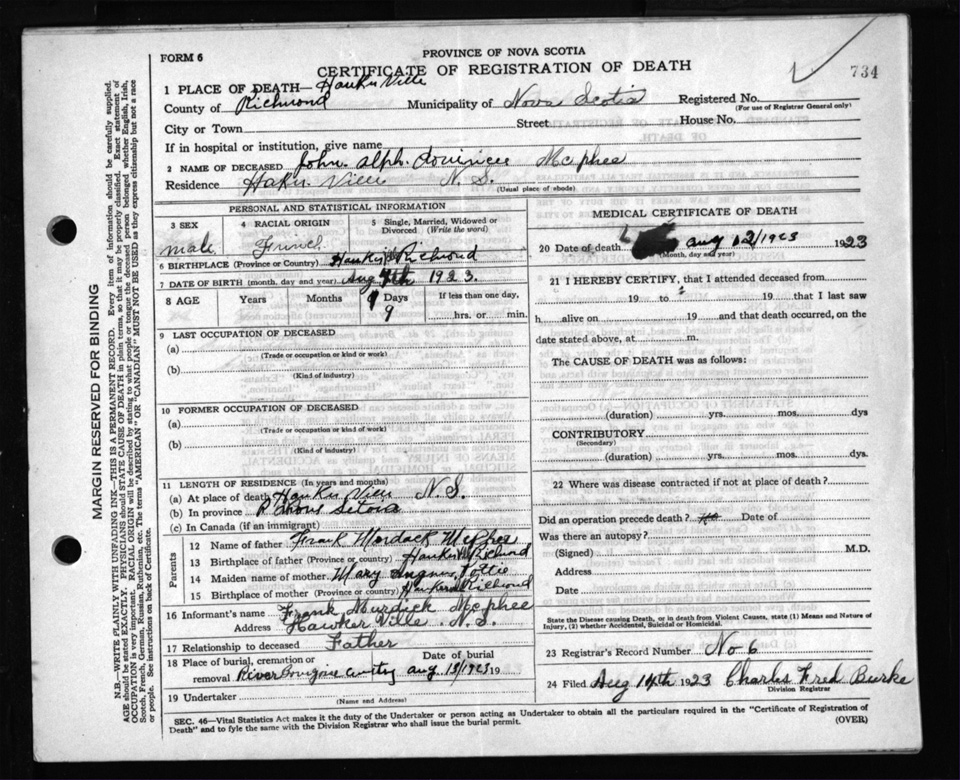 FORM 6
PROVINCE OF NOVA SCOTIA
CERTIFICATE OF REGISTRATION OF DEATH
734
1 PLACE OF DEATH— Hauker Ville
County of Richmond Municipality of Nova Scotia Registered No.
(For use of Registrar General only)
City or Town Street House No.
If in hospital or institution, give name
2 NAME OF DECEASED John. Alph. Mcphee
Residence Ville N. S.
(Usual place of abode)
PERSONAL AND STATISTICAL INFORMATION
3 SEX 4 RACIAL ORIGIN 5 Single, Married, Widowed or Divorced (Write the word)
male
6 BIRTHPLACE (Province or Country) Richmond
7 DATE OF BIRTH (month, day and year) Aug 4th 1923.
8 AGE Years Months Days If less than one day,
9
9
hrs. or min.
9 LAST OCCUPATION OF DECEASED
(a)
(Trade or occupation or kind or work)
(b)
(Kind of industry)
10 FORMER OCCUPATION OF DECEASED
(a)
(Trade or occupation or kind of work)
(b)
(Kind of industry)
11 LENGTH OF RESIDENCE (In years and months)
(a) At place of death Hauker Ville N. S.
(b) In province
(c) In Canada (if an immigrant)
Parents
12 Name of father Frank Mordack McPhee
13 Birthplace of father (Province or country) Richmond
14 Maiden name of mother Mary Pottie
15 Birthplace of mother (Province or country) Richmond
16 Informant's name Frank Murdick Mcphee
Address Hawker Ville. N. S.
17 Relationship to deceased Father
18 Place of burial, cremation or removal Date of burial
River aug 13/1923 19
19 Undertaker
(Name and Address)
MEDICAL CERTIFICATE OF DEATH
20 Date of death aug 12/1923 1923
(Month, day and year)
21 I HEREBY CERTIFY, that I attended deceased from
19 to 19 that I last saw
h alive on 19 and that death occurred, on the
date stated above, at m.
The CAUSE OF DEATH was as follows:
(duration) yrs. mos. dys
CONTRIBUTORY
(Secondary)
(duration) yrs. mos. dys.
22 Where was disease contracted if not at place of death?
Did an operation precede death? Date of
Was there an autopsy?
(Signed) M.D.
Address
Date
State the Disease causing Death, or in death from Violent Causes, state (1) Means and Nature of Injury, (2) whether Accidental, Suicidal or Homicidal.
23 Registrar's Record Number No 6
24 Filed Aug 14th 1923 Charles Fred Burke
Division Registrar
SEC. 46—Vital Statistics Act makes it the duty of the Undertaker or person acting as Undertaker to obtain all the particulars required in the "Certificate of Registration of
Death" and to fyle the same with the Division Registrar who shall issue the burial permit.
(OVER)
MARGIN RESERVED FOR BINDING
N.B.—WRITE PLAINLY WITH UNFADING INK—THIS IS A PERMANENT RECORD. Every item of information should be carefully supplied.
AGE should be stated EXACTLY. PHYSICIANS should STATE CAUSE OF DEATH in plain terms, so that it may be properly classified. Exact statement of
OCCUPATION is very important. RACIAL ORIGIN will be described by stating to what people or tongue the deceased person belonged whether English, Irish,
Scotch, French, German, Russian, Ruthenian, etc. The terms "AMERICAN" OR "CANADIAN" MUST NOT BE USED as they express citizenship but not a race
or people. See instructions on back of Certificate.